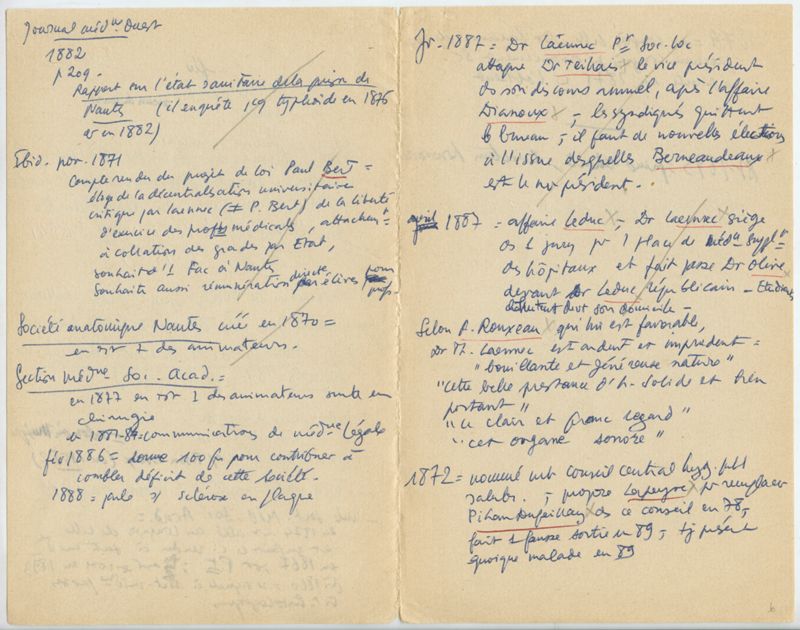 Journal médne Ouest
1882
p 209.
Rapport sur l'état sanitaire de la prison de
Nantes (il enquête, typhoïde en 1876
et en 1882)
Ebid. por. 1871
Compte rendu du projet de loi Paul Bert =
éloge de la décentralisation universitaire
critique par Laennec (≠ P. Bert) de la liberté
d'exercice des médicals, attachent
à collation des grades par Etat,
souhait d'1 Fac à Nantes
souhaite aussi rémunération directe par élèves pour profs
Société anatomique Nantes créé en 1870 =
en est 1 des animateurs.
Section médne Soc. Acad. =
en 1877 en est 1 des animateurs surtt en
chirurgie
en 1881-84 = communications de médne légale
1886 = donne 100 fr pour contribuer à
combler déficit de cette société.
1888 = parle sclérose en plaque
Jr. 1887 = Dr Laennec Pr Soc. loc
attaque Dr Teihais le vice président
ds son discours annuel, après l'affaire
Dianoux -, les syndiqués quittent
le bureau -, il faut de nouvelles élections
à l'issue desquelles Berneaudeaux
est le nv président.
avril 1887 = affaire Leduc -, Dr Laennec siège
ds 1 jury pr 1 place de médn Suppl
des hôpitaux et fait passer Dr Olive
devant Dr Leduc républicain - Etudiants
devt son domicile -
Selon P. Rouxeau qui lui est favorable,
Dr Th. Laennec est ardent et imprudent =
"bouillante et généreuse nature"
"cette belle prestance d'h. solide et bien
portant"
"ce clair et franc regard"
"cet organe sonore"
1872 = nommé conseil central hyg. pbl
salubr. -, propose Lapeyre pr remplacer
Pihan Dufeillay ds ce conseil en 78 -,
fait 1 fausse sortie en 89 - tj présent
quoique malade en 89
6